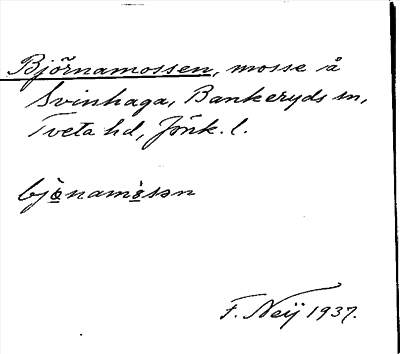 Björnamossen, mosse å
Svinhaga, Bankeryds sn,
Tveta hd, Jönk. l.
bjönamòsən
F. Neij 1937.